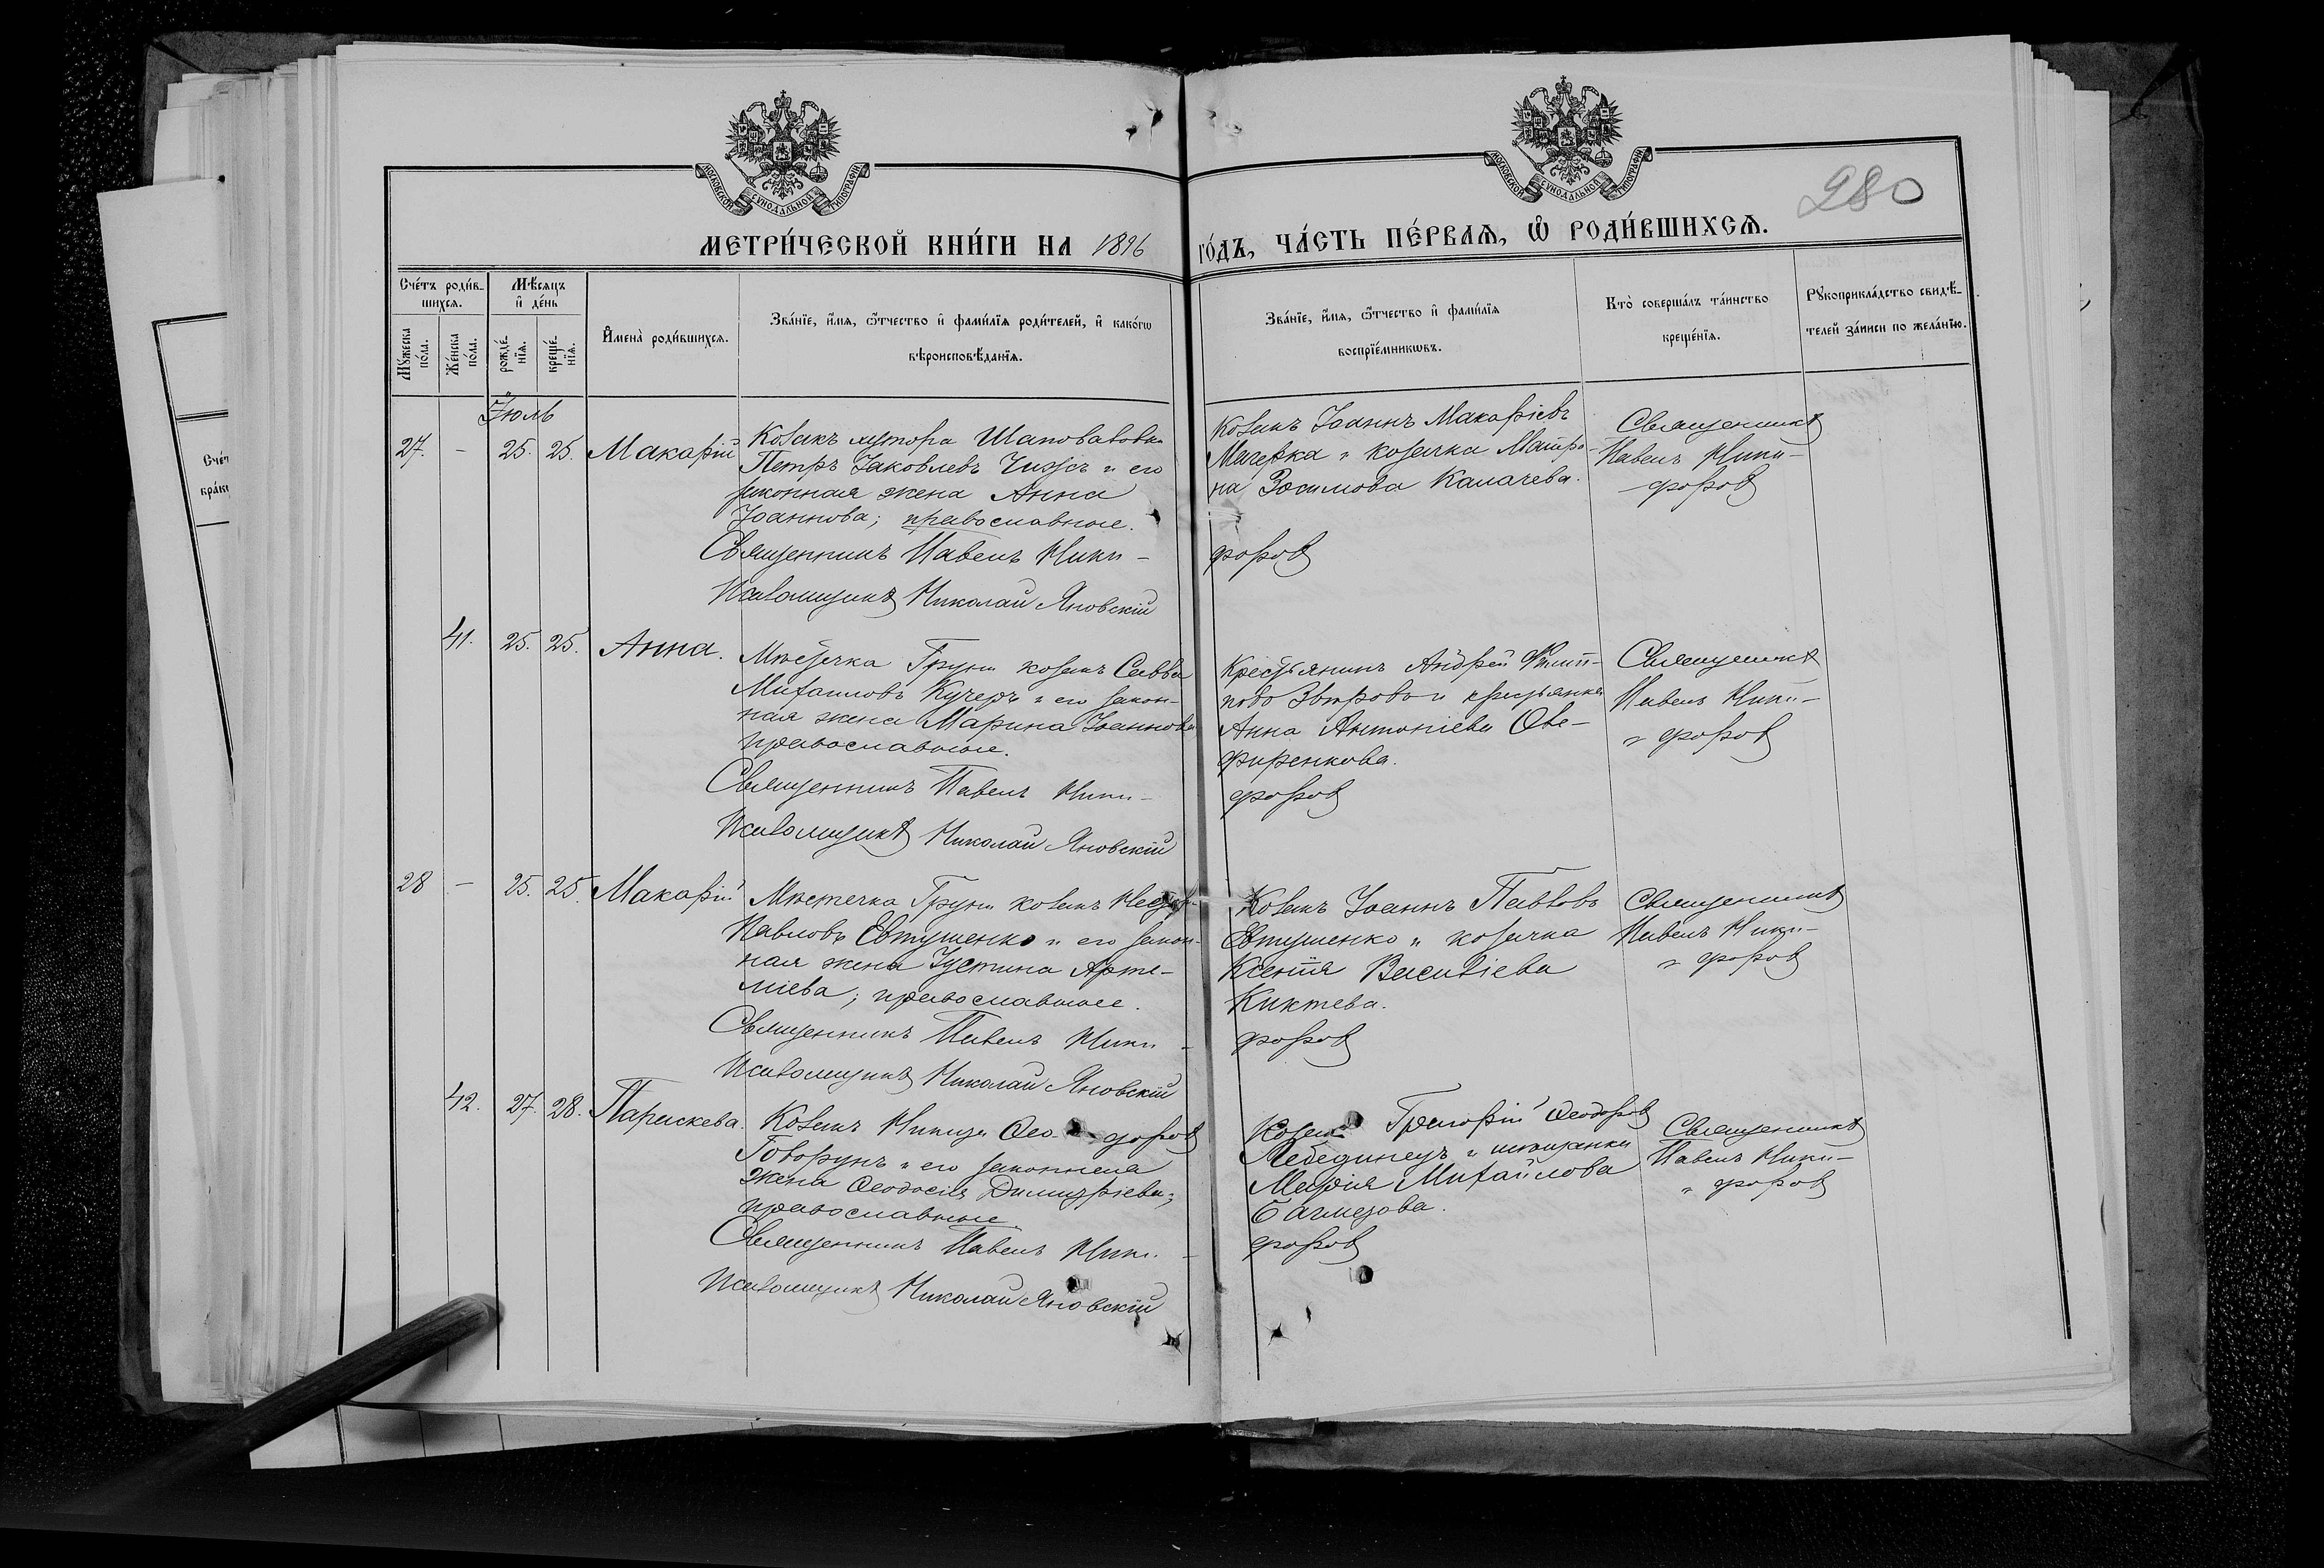 МОСКОВСКОЙ СѴНОДАЛЬНОЙ ТИПОГРАФІИ
МОСКОВСКОЙ СѴНОДАЛЬНОЙ ТИПОГРАФІИ
280
МЕТРИ́ЧЕСКОЙ КНИ́ГИ НА 1896 ГО́ДЪ, ЧА́СТЬ ПЕ́РВАѦ, Ѡ҆ РОДИ́ВШИХСѦ.
Сче́тъ роди́в-
шихсѧ.
Мꙋ́жеска по́ла.
Же́нска по́ла.
Мѣ́сѧцъ и҆ де́нь
рожде́нїѧ.
креще́нїѧ.
И҆мена̀ роди́вшихсѧ.
Зва́нїе, и҆́мѧ, ѻ҆́тчество и҆ фами́лїѧ роди́телей, и҆ како́гѡ
вѣроисповѣ́данїѧ.
Зва́нїе, и҆́мѧ, ѻ҆́тчество и҆ фами́лїѧ
воспрїе́мникѡвъ.
Кто̀ соверша́лъ та́инство
креще́нїѧ.
Рꙋкоприкла́дство свидѣ́-
телей за́писи по жела́нїю.
Іюль
27. - 25. 25. Макарій
Козакъ хутора Шаповаловки
Петръ Іаковлевъ Чижъ и его
законная жена Анна
Іоаннова; православные.
Священникъ Павелъ Ники-
форовъ
Псаломщикъ Николай Яновскій
Козакъ Іоаннъ Макаріевъ
и козачка Матро-
на Зосимова Калачева.
Священникъ
Павелъ Ники-
форовъ
41. 25. 25. Анна.
Мѣстечка Груни козакъ Савва
Михаиловъ Кучеръ и его закон-
ная жена Марина Іоаннова
православные.
Священникъ Павелъ Ники-
форовъ
Псаломщикъ Николай Яновскій
Крестьянинъ Андрей Филип-
повъ и крестьянка
Анна Антоніева Ѳве-
ренкова.
Священникъ
Павелъ Ники-
форовъ
28 - 25. 25. Макарій
Мѣстечка Груни козакъ
Павловъ Евтушенко и его закон-
ная жена Іустина Арте-
міева; православные.
Священникъ Павелъ Ники-
форовъ
Псаломщикъ Николай Яновскій
Козакъ Іоаннъ Павловъ
Евтушенко и козачка
Ксенія Василіева
Киктева.
Священникъ
Павелъ Ники-
форовъ
42. 27. 28. Параскева.
Козакъ Никита Ѳео-доровъ
Говорунъ и его законная
жена Ѳеодосія Димитріева;
православные.
Священникъ Павелъ Ники-
форовъ
Псаломщикъ Николай Яновскій
Козакъ Григорій Ѳеодоровъ
Лебединецъ и
Марія Михаилова
Священникъ
Павелъ Ники-
форовъ